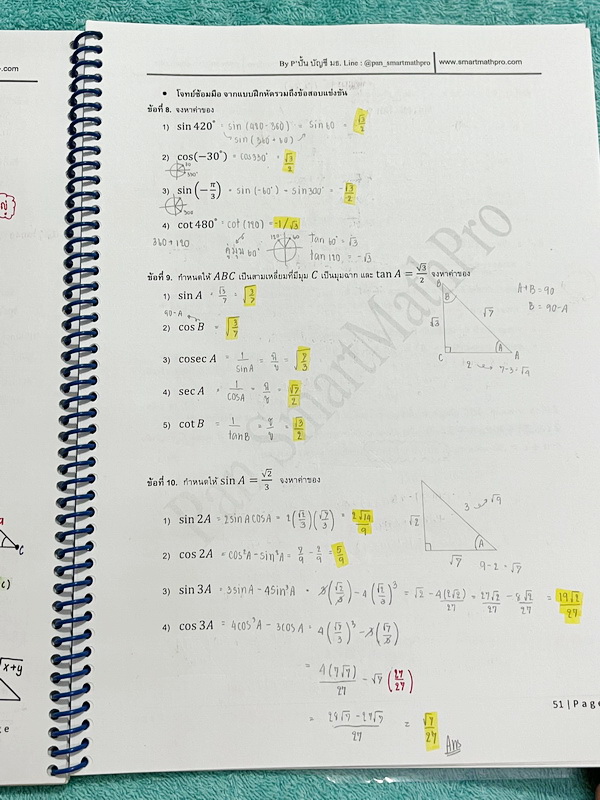 .com
By P'ปั้น บัญชี มธ. Line : @pan_smartmathpro | www.smartmathpro.com
• โจทย์ซ้อมมือ จากแบบฝึกหัดรวมถึงข้อสอบแข่งขัน
ข้อที่ 8. จงหาค่าของ
1) sin 420° = sin (420-360) = sin 60 = √3/2
sin (360+60)
2) cos(−30°) = cos 330° = √3/2
30
330°
3) sin(−π/3) = sin (-60°) = sin 300° = -√3/2
300
4) cot 480° = cot (120) = -1/√3
360+120
คู่มุม 60°
120
60
tan 60° = √3
tan 120. = -√3
ข้อที่ 9. กำหนดให้ ABC เป็นสามเหลี่ยมที่มีมุม C เป็นมุมฉาก และ tan A = √3/2 จงหาค่าของ
1) sin A = √3/√7 = √(3/7)
90-A
2) cos B = √(3/7)
3) cosec A = 1/sin A = = √(7/3)
4) sec A = 1/cos A = = √7/2
5) cot B = 1/tan B = = √3/2
B
B
√3
√7
C
A
A
2
7-3=√4
A+B = 90
B = 90-A
ข้อที่ 10. กำหนดให้ sin A = √2/3 จงหาค่าของ
1) sin 2A = 2sin A cos A = 2(√2/3)(√7/3) = 2√14/9
2) cos 2A = cos²A - sin²A = 7/9 - 2/9 = 5/9
3) sin 3A = 3sin A - 4sin³A = 3(√2/3) - 4(√2/3)³ = √2 - 4(2√2)/27 = 27√2/27 - 8√2/27 = 19√2/27
4) cos 3A = 4cos³A - 3cos A = 4(√7/3)³ - 3(√7/3)
= 4(7√7)/27 - √7 (27/27)
= 28√7 - 27√7/27 = √7/27
Ans
√2
3
√9
A
√7
9-2 = √7
51 | Page
Pan SmartMathPro
C
c)
√x+y
e